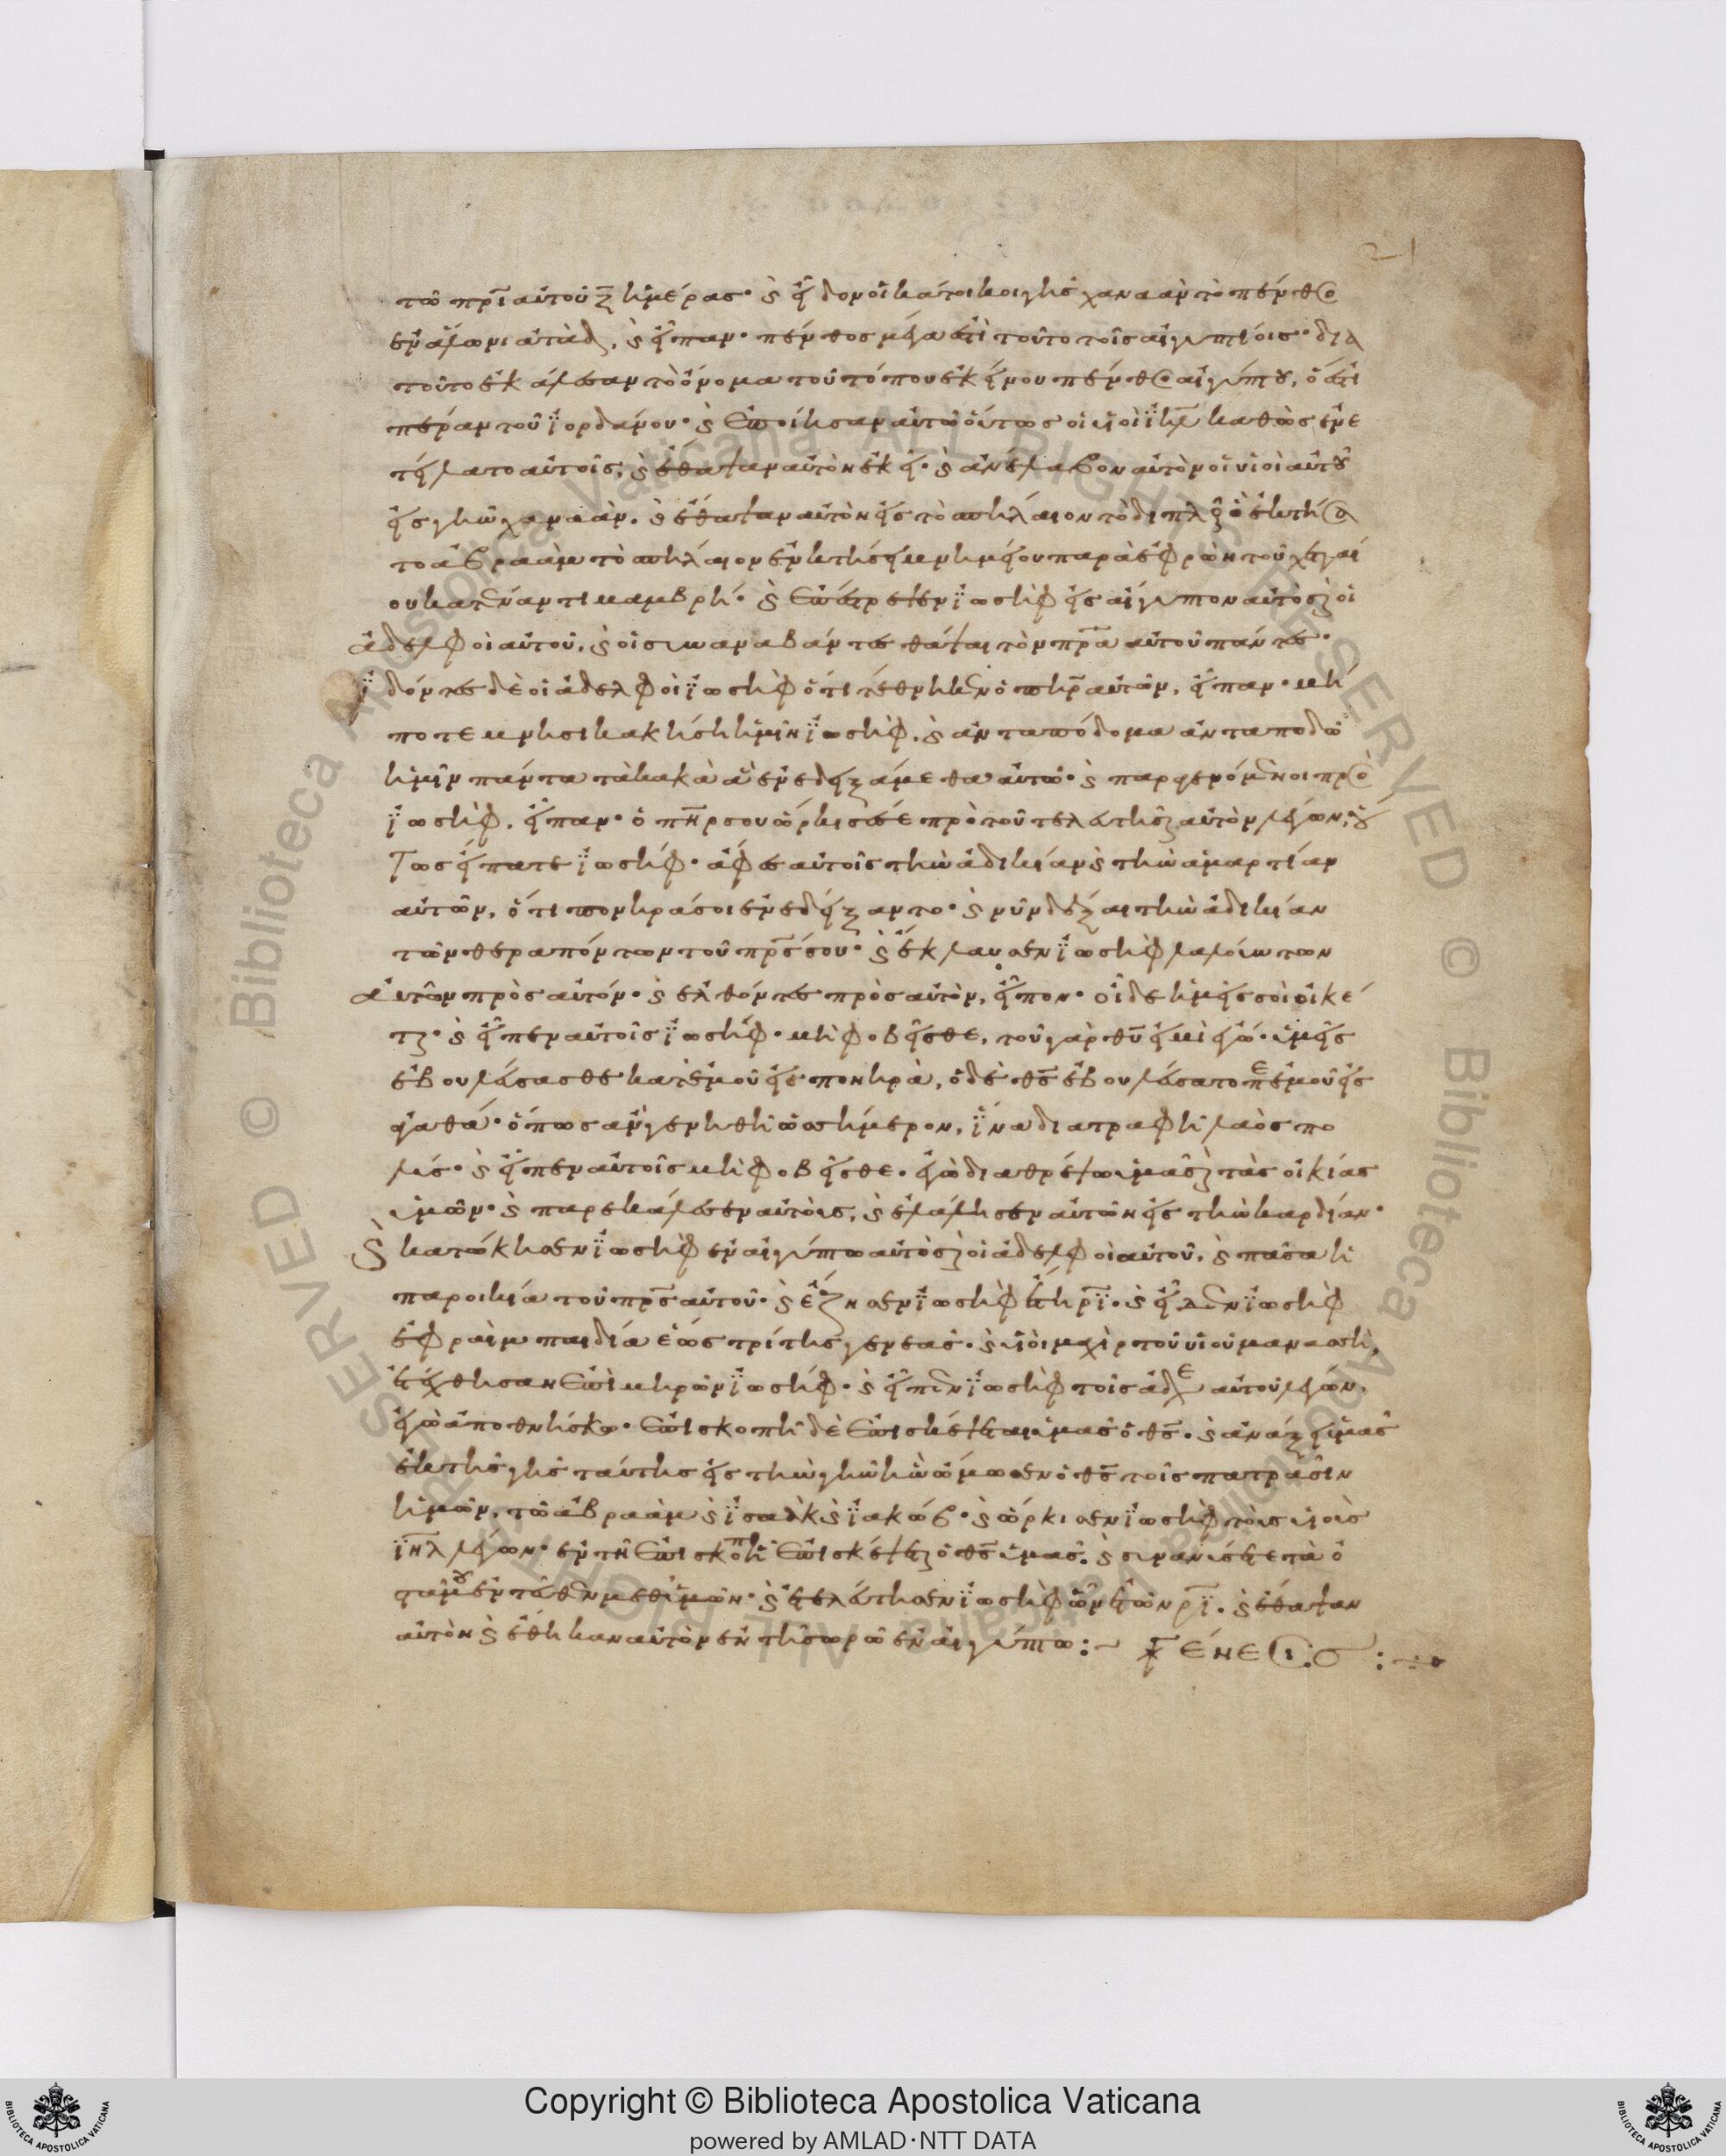 21
τῶ πρ̅ι αὐτοῦ ζ̅ ἡμέρας· καὶ εἶδον οἱ κάτοικοι γῆς χαναὰν τὸ πένθος
ἐν ἅλωνι ἀτὰδ, καὶ εἶπαν· πένθος μέγα ἐστὶ τοῦτο τοῖς αἰγυπτίοις· δια
τοῦτο ἐκάλεσαν τὸ ὄνομα τοῦ τόπου ἐκείνου πένθος αἰγύπτου, ὅ ἐστι
πέραν τοῦ ϊορδάνου· καὶ ἐποίησαν αὐτῶ οὕτως οἱ υἱοὶ ϊη̅λ καθὼς ἐνε
τείλατο αὐτοῖς, καὶ ἔθαψαν αὐτὸν ἐκεῖ· καὶ ἀνέλαβον αὐτὸν οἱ υἱοὶ αὐτοῦ
εἰς γῆν χαναὰν. καὶ ἔθαψαν αὐτὸν εἰς τὸ σπήλαιον τὸ διπλοῦν ὃ ἐκτήσα
το ἀβραὰμ τὸ σπήλαιον ἐν κτήσει μνημείου παρὰ ἐφρὼν τοῦ χετταί
ου κατέναντι μαμβρή· καὶ ἐπέστρεψεν ϊωσὴφ εἰς αἴγυπτον αὐτὸς καὶ οἱ
ἀδελφοὶ αὐτοῦ, καὶ οἱ συναναβάντες θάψαι τὸν πρ̅α αὐτοῦ πάντες·
ϊδόντες δὲ οἱ ἀδελφοὶ ϊωσὴφ ὅτι τέθνηκεν ὁ πη̅ρ αὐτῶν, εἶπαν· μή
ποτε μνησικακήση ἡμῖν ϊωσὴφ, καὶ ἀνταπόδομα ἀνταποδῶ
ἡμῖν πάντα τὰ κακὰ ἃ ἐνεδειξάμεθα αὐτῶ· καὶ παργενόμενοι πρὸς
ϊωσὴφ, εἶπαν· ὁ πη̅ρ σου ὥρκισέ σε πρὸ τοῦ τελευτῆσαι αὐτὸν λέγων, οὕ
τως εἴπατε ϊωσήφ· ἄφες αὐτοῖς τὴν ἀδικίαν καὶ τὴν ἁμαρτίαν
αὐτῶν, ὅτι πονηρά σοι ἐνεδείξαντο· καὶ νῦν δέξαι τὴν ἀδικίαν
τῶν θεραπόντων τοῦ πρ̅ς σου· καὶ ἔκλαυσεν ϊωσὴφ λαλούντων
αὐτῶν πρὸς αὐτόν· καὶ ἐλθόντες πρὸς αὐτὸν, εἶπον· οἵδε ἡμεῖς σοὶ οἰκέ
ται· καὶ εἶπεν αὐτοῖς ϊωσήφ· μὴ φοβεῖσθε, τοῦ γὰρ θυ̅ εἰμὶ ἐγώ· ὑμεῖς
ἐβουλεύσασθε κατ' ἐμοῦ εἰς πονηρὰ, ὁ δὲ θς̅ ἐβουλεύσατο περὶ ἐμοῦ εἰς
ἀγαθά· ὅπως ἂν γενηθῆ ὡς σήμερον, ἵνα διατραφῆ λαὸς πο
λύς· καὶ εἶπεν αὐτοῖς μὴ φοβεῖσθε· ἐγὼ διαθρέψω ὑμᾶς καὶ τὰς οἰκίας
ὑμῶν· καὶ παρεκάλεσεν αὐτοὺς, καὶ ἐλάλησεν αὐτῶν εἰς τὴν καρδίαν·
καὶ κατώκησεν ϊωσὴφ ἐν αἰγύπτω αὐτὸς καὶ οἱ ἀδελφοὶ αὐτοῦ, καὶ πᾶσα ἡ
παροικία τοῦ πρ̅ς αὐτοῦ· καὶ ἔζησεν ϊωσὴφ ἔτη ρ̅ϊ· καὶ εἶδεν ϊωσὴφ
ἐφραὶμ παιδία ἕως τρίτης γενεᾶς· καὶ υἱοὶ μαχὶρ τοῦ υἱοῦ μανασσὴ,
ἐτέχθησαν ἐπὶ μηρῶν ϊωσήφ· καὶ εἶπεν ϊωσὴφ τοῖς ἀδελφοῖς αὐτοῦ λέγων,
ἐγὼ ἀποθνήσκω· ἐπισκοπῆ δὲ ἐπισκέψεται ὑμᾶς ὁ θς̅· καὶ ἀνάξει ὑμᾶς
ἐκ τῆς γῆς ταύτης εἰς τὴν γῆν ἣν ὤμοσεν ὁ θς̅ τοῖς πατράσιν
ἡμῶν, τῶ ἀβραὰμ καὶ ϊσαὰκ καὶ ϊακώβ· καὶ ὥρκισεν ϊωσὴφ τοὺς υἱοὺς
ϊη̅λ λέγων· ἐν τῆ ἐπισκοπῆ ἐπισκέψεται ὁ θς̅ ὑμᾶς· καὶ συνανοίσετε τὰ ὀ
στᾶ μου ἐντεῦθεν μεθ' ὑμῶν· καὶ ἐτελεύτησεν ϊωσὴφ ὢν ἐτῶν ρ̅ϊ· καὶ ἔθαψαν
αὐτὸν καὶ ἔθηκαν αὐτὸν ἐν τῆ σορῶ ἐν αἰγύπτω:~ ΓΕΝΕCΙC:~
Copyright © Biblioteca Apostolica Vaticana
powered by AMLAD·NTT DATA